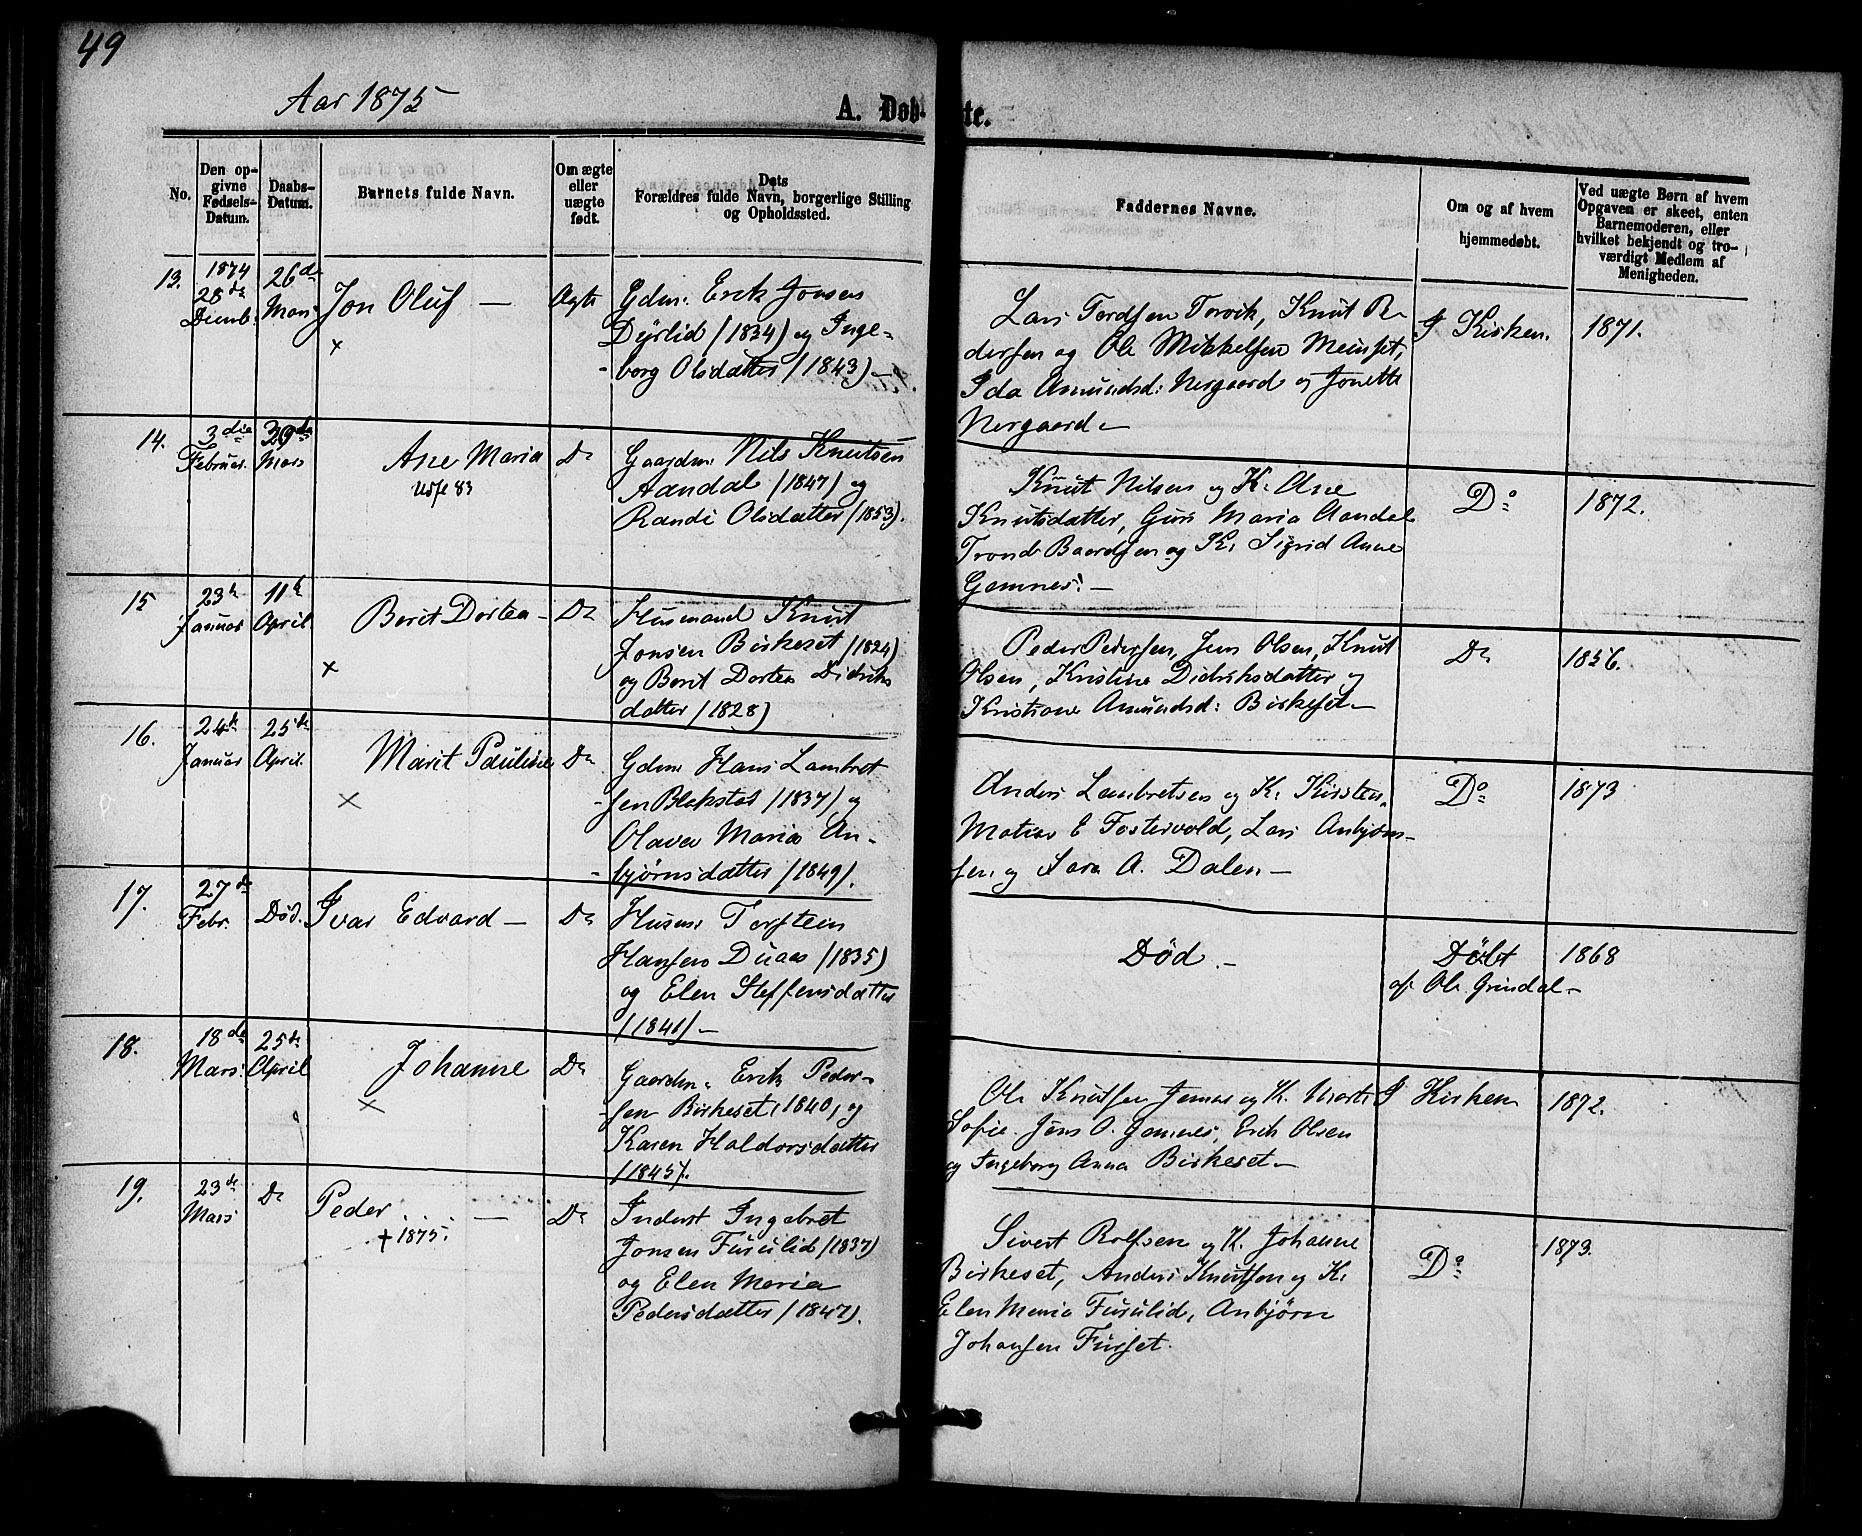 49
Aar 1875
A. Døb-
te.
No.
Den op-
givne
Fødsels-
Datum.
Daabs-
Datum.
Barnets fulde Navn.
Om ægte
eller
uægte
født.
Dets
Forældres fulde Navn, borgerlige Stilling
og Opholdssted.
Faddernes Navne.
Om og af hvem
hjemmedøbt.
Ved uægte Børn af hvem
Opgaven er skeet, enten
Barnemoderen, eller
hvilket bekjendt og tro-
værdigt Medlem af
Menigheden.
13.
1874
28de
Decmb.
26de
Mars
Jon Oluf —
×
Ægte
Gdm. Erik Jonsen
Dyrlid (1834) og Inge-
borg Olsdatter (1843) —
Lars Tordsen Torvik, Knut Pe-
dersen og Ole Mikkelsen Meinset,
Ida Amundsd: Nergaard og Jonette
Nergaard —
I Kirken.
1871.
14.
3die
Februar.
29de
Mars
Ane Maria
Udfl 83
Do
Gaardm: Nils Knutsen
Aandal (1847) og
Randi Olsdatter (1853).
Knut Nilsen og K. Ane
Knutsdatter, Guri Maria Aandal
Trond Baardsen og K. Sigrid Anne
Gamnes. —
Do
1872.
15
23de
Januar
11te
April
Berit Dortea —
×
Do
Husmand Knut
Jonsen Birkeset (1824)
og Berit Dortea Didriks
datter (1828)
Peder Pedersen, Jens Olsen, Knut
Olsen, Kristine Didriksdatter og
Kristiane Amundsd: Birkeset —
Do
1856.
16.
24de
Januar
25de
April.
Marit Pauline
×
Do
Gdm. Hans Lambret
-sen Blakstad (1837) og
Olava Maria An-
-bjørnsdatter (1849).
Anders Lambretsen og K. Kirsten,
Matias E Fostervold, Lars Anbjørn-
sen og Sara A. Dalen —
Do
1873
17.
27de
Febr.
Død.
Ivar Edvard —
Do
Husm: Torstein
Hansen Duaas (1835)
og Elen Steffensdatter
(1841) —
Død. —
Døbt
af Ole Grindal —
1868
18.
18de
Mars.
25de
April
Johanne
×
Do
Gaardm: Erik Peder-
-sen Birkeset, 1840, og
Karen Haldorsdatter
(1845).
Ole Knutsen Jemnes og K. Marti
Sofie. Jens O. Gamnes, Erik Olsen
og Ingeborg Anna Birkeset —
I Kirken
1872.
19.
23de
Mars
Do
Peder —
+ 1875.
Do
Inderst Ingebret
Jonsen Furulid (1837)
og Elen Maria
Pedersdatter (1847).
Sivert Rolfsen og K. Johanne
Birkeset, Anders Knutsen og K.
Elen Maria Furulid, Anbjørn
Johansen Furset.
Do
1873.